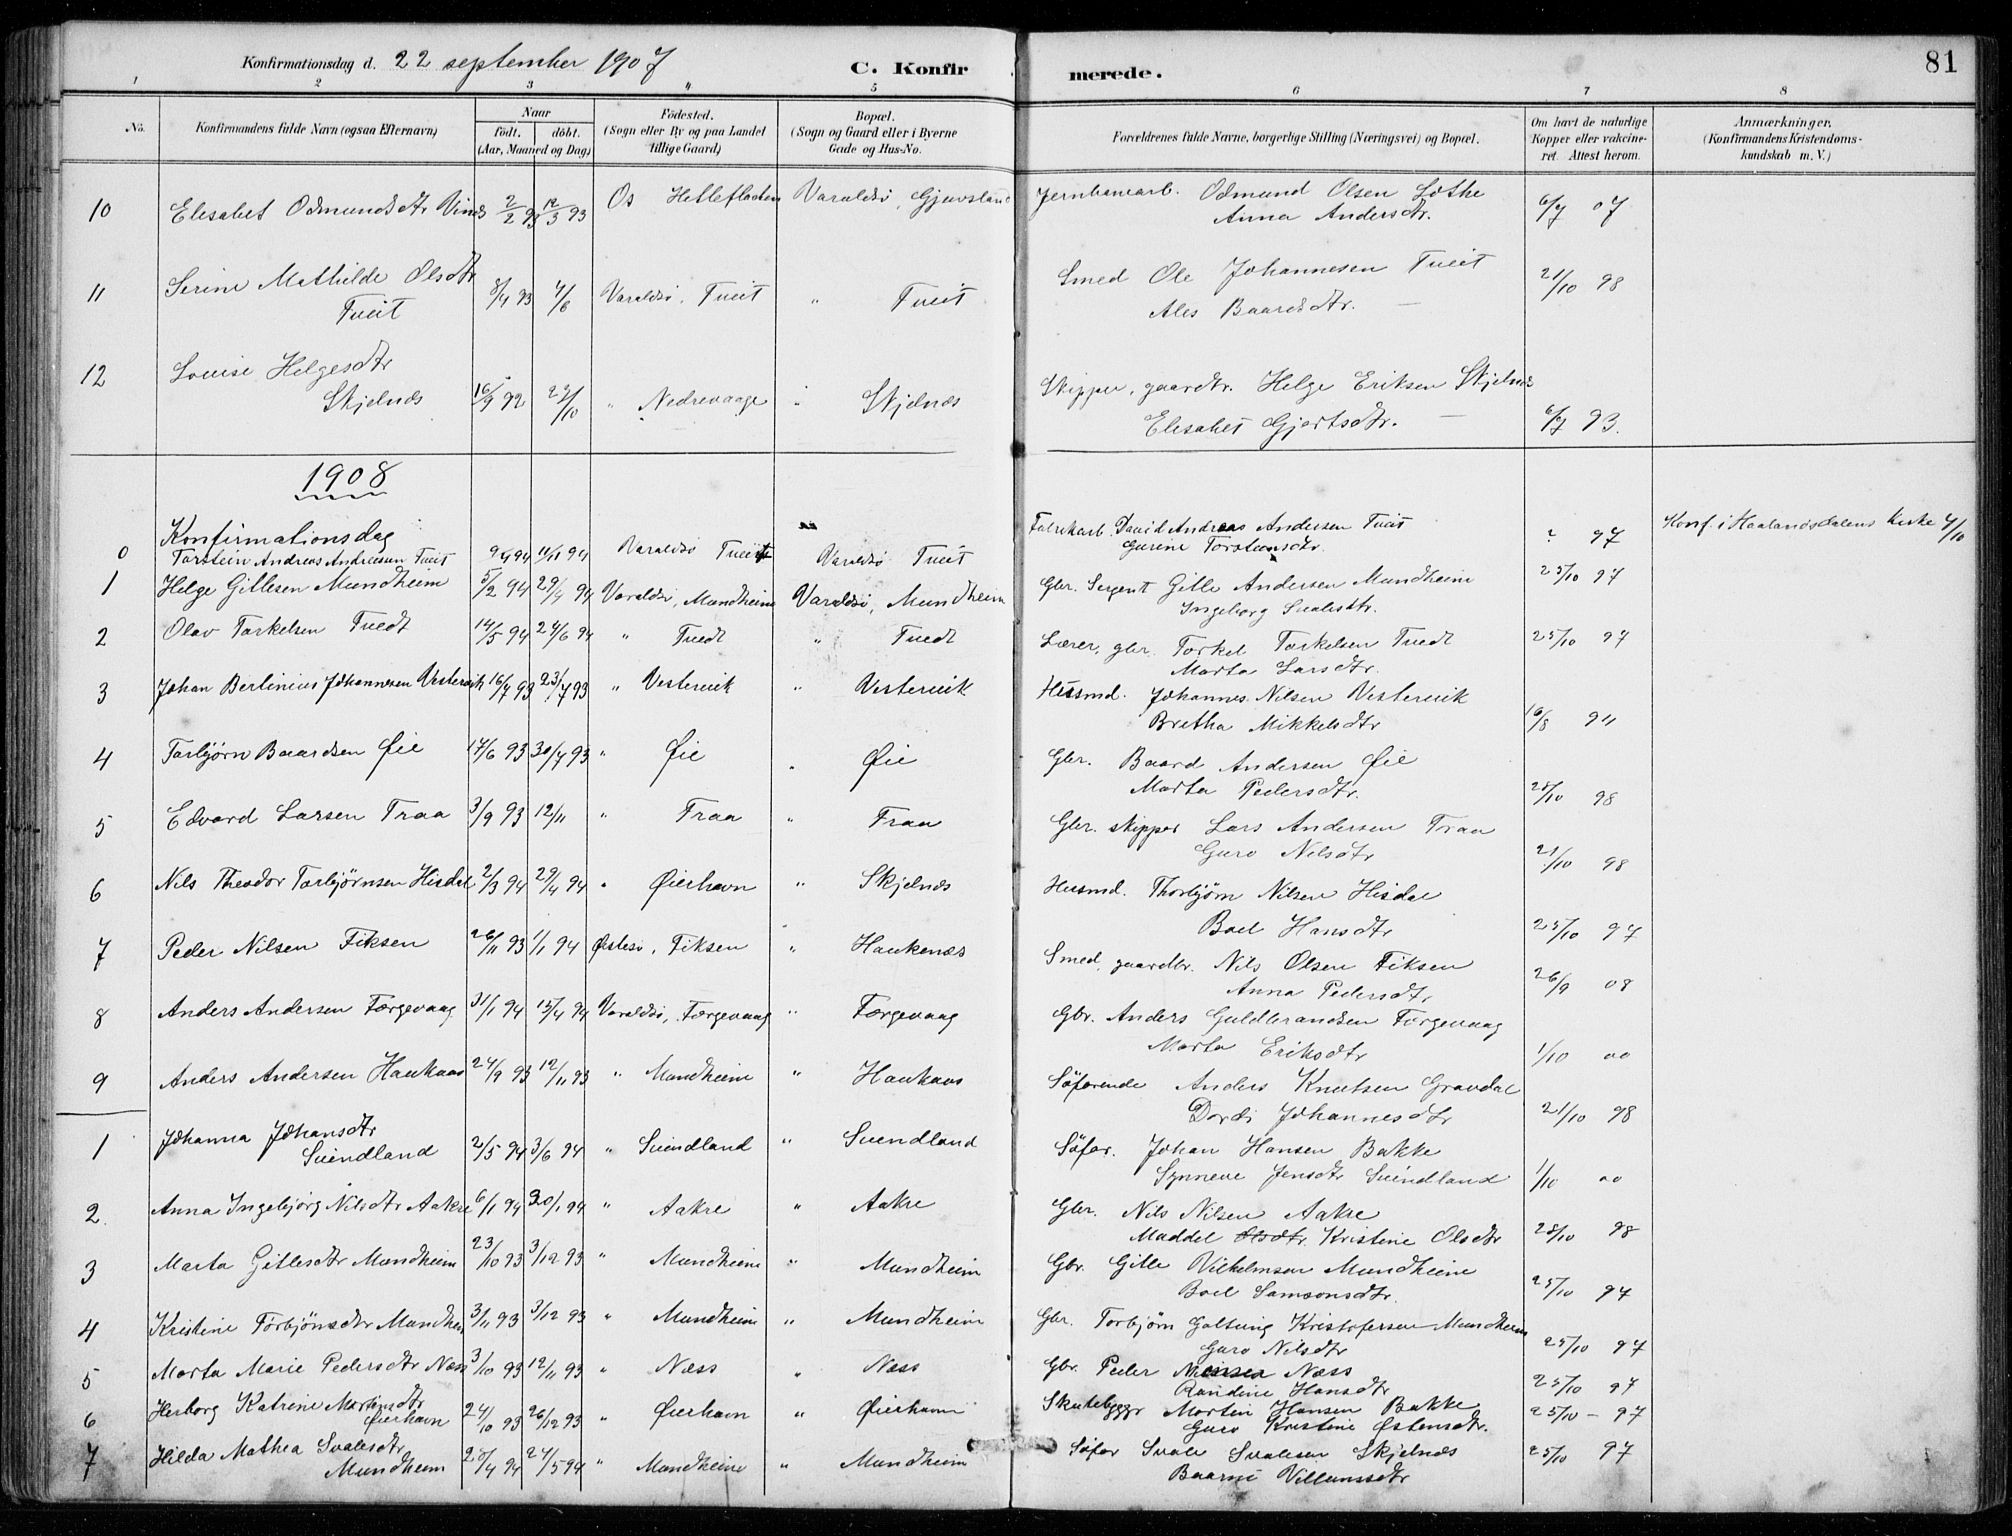 Konfirmationsdag d. 22 september 1907 C. Konfirmerede. 81
1 2 3 4 5 6 7 8
No. Konfirmandens fulde Navn (ogsaa Efternavn) Naar født. døbt. (Aar, Maaned og Dag) Fødested. (Sogn eller By og paa Landet tillige Gaard) Bopæl. (Sogn og Gaard eller i Byerne Gade og Hus-No. Forældrenes fulde Navne, borgerlige Stilling (Næringsvei) og Bopæl. Om havt de naturlige Kopper eller vakcineret. Attest herom. Anmærkninger. (Konfirmandens Kristendomskundskab m. V.)
10 Elisabet Odmundsdtr Vines 2/2 93 12/3 93 Os Varaldsø, Gjuvsland Jernbanearb. Odmund Olsen Lothe 6/7 07
Anna Andersdtr.
11 Serine Mathilde Olsdtr 8/4 93 4/6 Varaldsø, Tveit " Tveit Smed Ole Johannesen Tveit 21/10 98
Tveit Ales Baardsdtr. —
12 Louise Helgesdtr Skipper, gaardbr. Helge Eriksen Skjelnes
Skjelnæs 16/9 92 23/10 " Nedrevaage " Skjelnæs Elisabet Gjertsdtr. — 6/7 93.
1908
Konfirmationsdag
0 Torstein Andreas Andreasen Tveit 9/9 94 11/11 94 Varaldsø Tveit Varaldsø Tveit Fabrikarb. David Andreas Andersen Tveit ? 97 Konf. i Haalandsdalens kirke 4/10
Gurine Torsteinsdtr.
1 Helge Gitlesen Mundheim 5/2 94 29/4 94 Varaldsø, Mundheim Varaldsø, Mundheim Gbr. Sergent Gitle Andersen Mundheim 25/10 97
Ingeborg Svalesdtr.
2 Olav Torkelsen Tvedt 14/5 94 24/6 94 " Tvedt " Tvedt Lærer, gbr. Torkel Torkelsen Tvedt 25/10 97
Marta Larsdtr.
3 Johan Bertinius Johannesen Vestervik 16/7 93 23/7 93 " Vestervik " Vestervik Husmd. Johannes Nilsen Vestervik
Bretha Mikkelsdtr 16/8 94
4 Torbjørn Baardsen Øie 17/6 93 30/7 93 " Øie " Øie Gbr. Baard Andersen Øie
Marta Pedersdtr. 25/10 98
5 Edvard Larsen Traa 3/9 93 12/11 " Traa " Traa Gbr. skipper Lars Andersen Traa
Guro Nilsdtr 21/10 98
6 Nils Theodor Torbjørnsen Hisdal 2/3 94 29/4 94 " Øierhavn " Skjelnæs Husmd. Thorbjørn Nilsen Hisdal
Boel Hansdtr 25/10 97
7 Peder Nilsen Fiksen 26/11 93 1/1 94 Østesø, Fiksen " Haukenæs Smed, gaardbr. Nils Olsen Fiksen
Anna Pedersdtr 26/9 08
8 Anders Andersen Færgevaag 31/1 94 15/4 94 Varaldsø, Færgevaag " Færgevaag Gbr. Anders Guldbrandsen Færgevaag
Marta Eriksdtr 1/10 00
9 Anders Andersen Haukaas 24/9 93 12/11 93 " Mundheim " Haukaas Søfarende Anders Knutsen Gravdal
Dordi Johannesdtr 21/10 98
1 Johanna Johansdtr Søfar. Johan Hansen Bakke
Suindland 2/5 94 3/6 94 " Suindland " Suindland Synneve Jensdtr Suindland 1/10 00
2. Anna Ingebjørg Nilsdtr Aakre 6/1 94 30/1 94 " Aakre " Aakre Gbr. Nils Nilsen Aakre
Maddel Olsdtr. Kristine Olsdtr 28/10 98
3 Marta Gitlesdtr Mundheim 23/10 93 3/12 93 " Mundheim " Mundheim Gbr. Gitle Vilhelmsen Mundheim
Boel Samsonsdtr. 25/10 97
4 Kristine Torbjønsdtr Mundheim 3/11 93 3/12 93 " Mundheim " Mundheim Gbr. Torbjørn Galtung Kristofersen Mundheim
Guro Nilsdtr 25/10 97
5 Marta Marie Pedersdtr Næss 3/10 93 12/11 93 " Næss " Næss Gbr. Peder Næss
Randine Hansdtr 25/10 97
6 Herborg Katrine Martinsdtr Skutebyggr Martin Hansen Bakke 25/10 — 97
Øierhavn 24/10 93 26/12 93 " Øierhavn " Øierhavn Guro Kristine Østensdtr.
7 Hilda Mathea Svalesdtr Søfar Svale Svalesen Skjelnæs 25/10 97
Mundheim 20/4 94 27/5 94 " Mundheim " Mundheim Villumsdtr